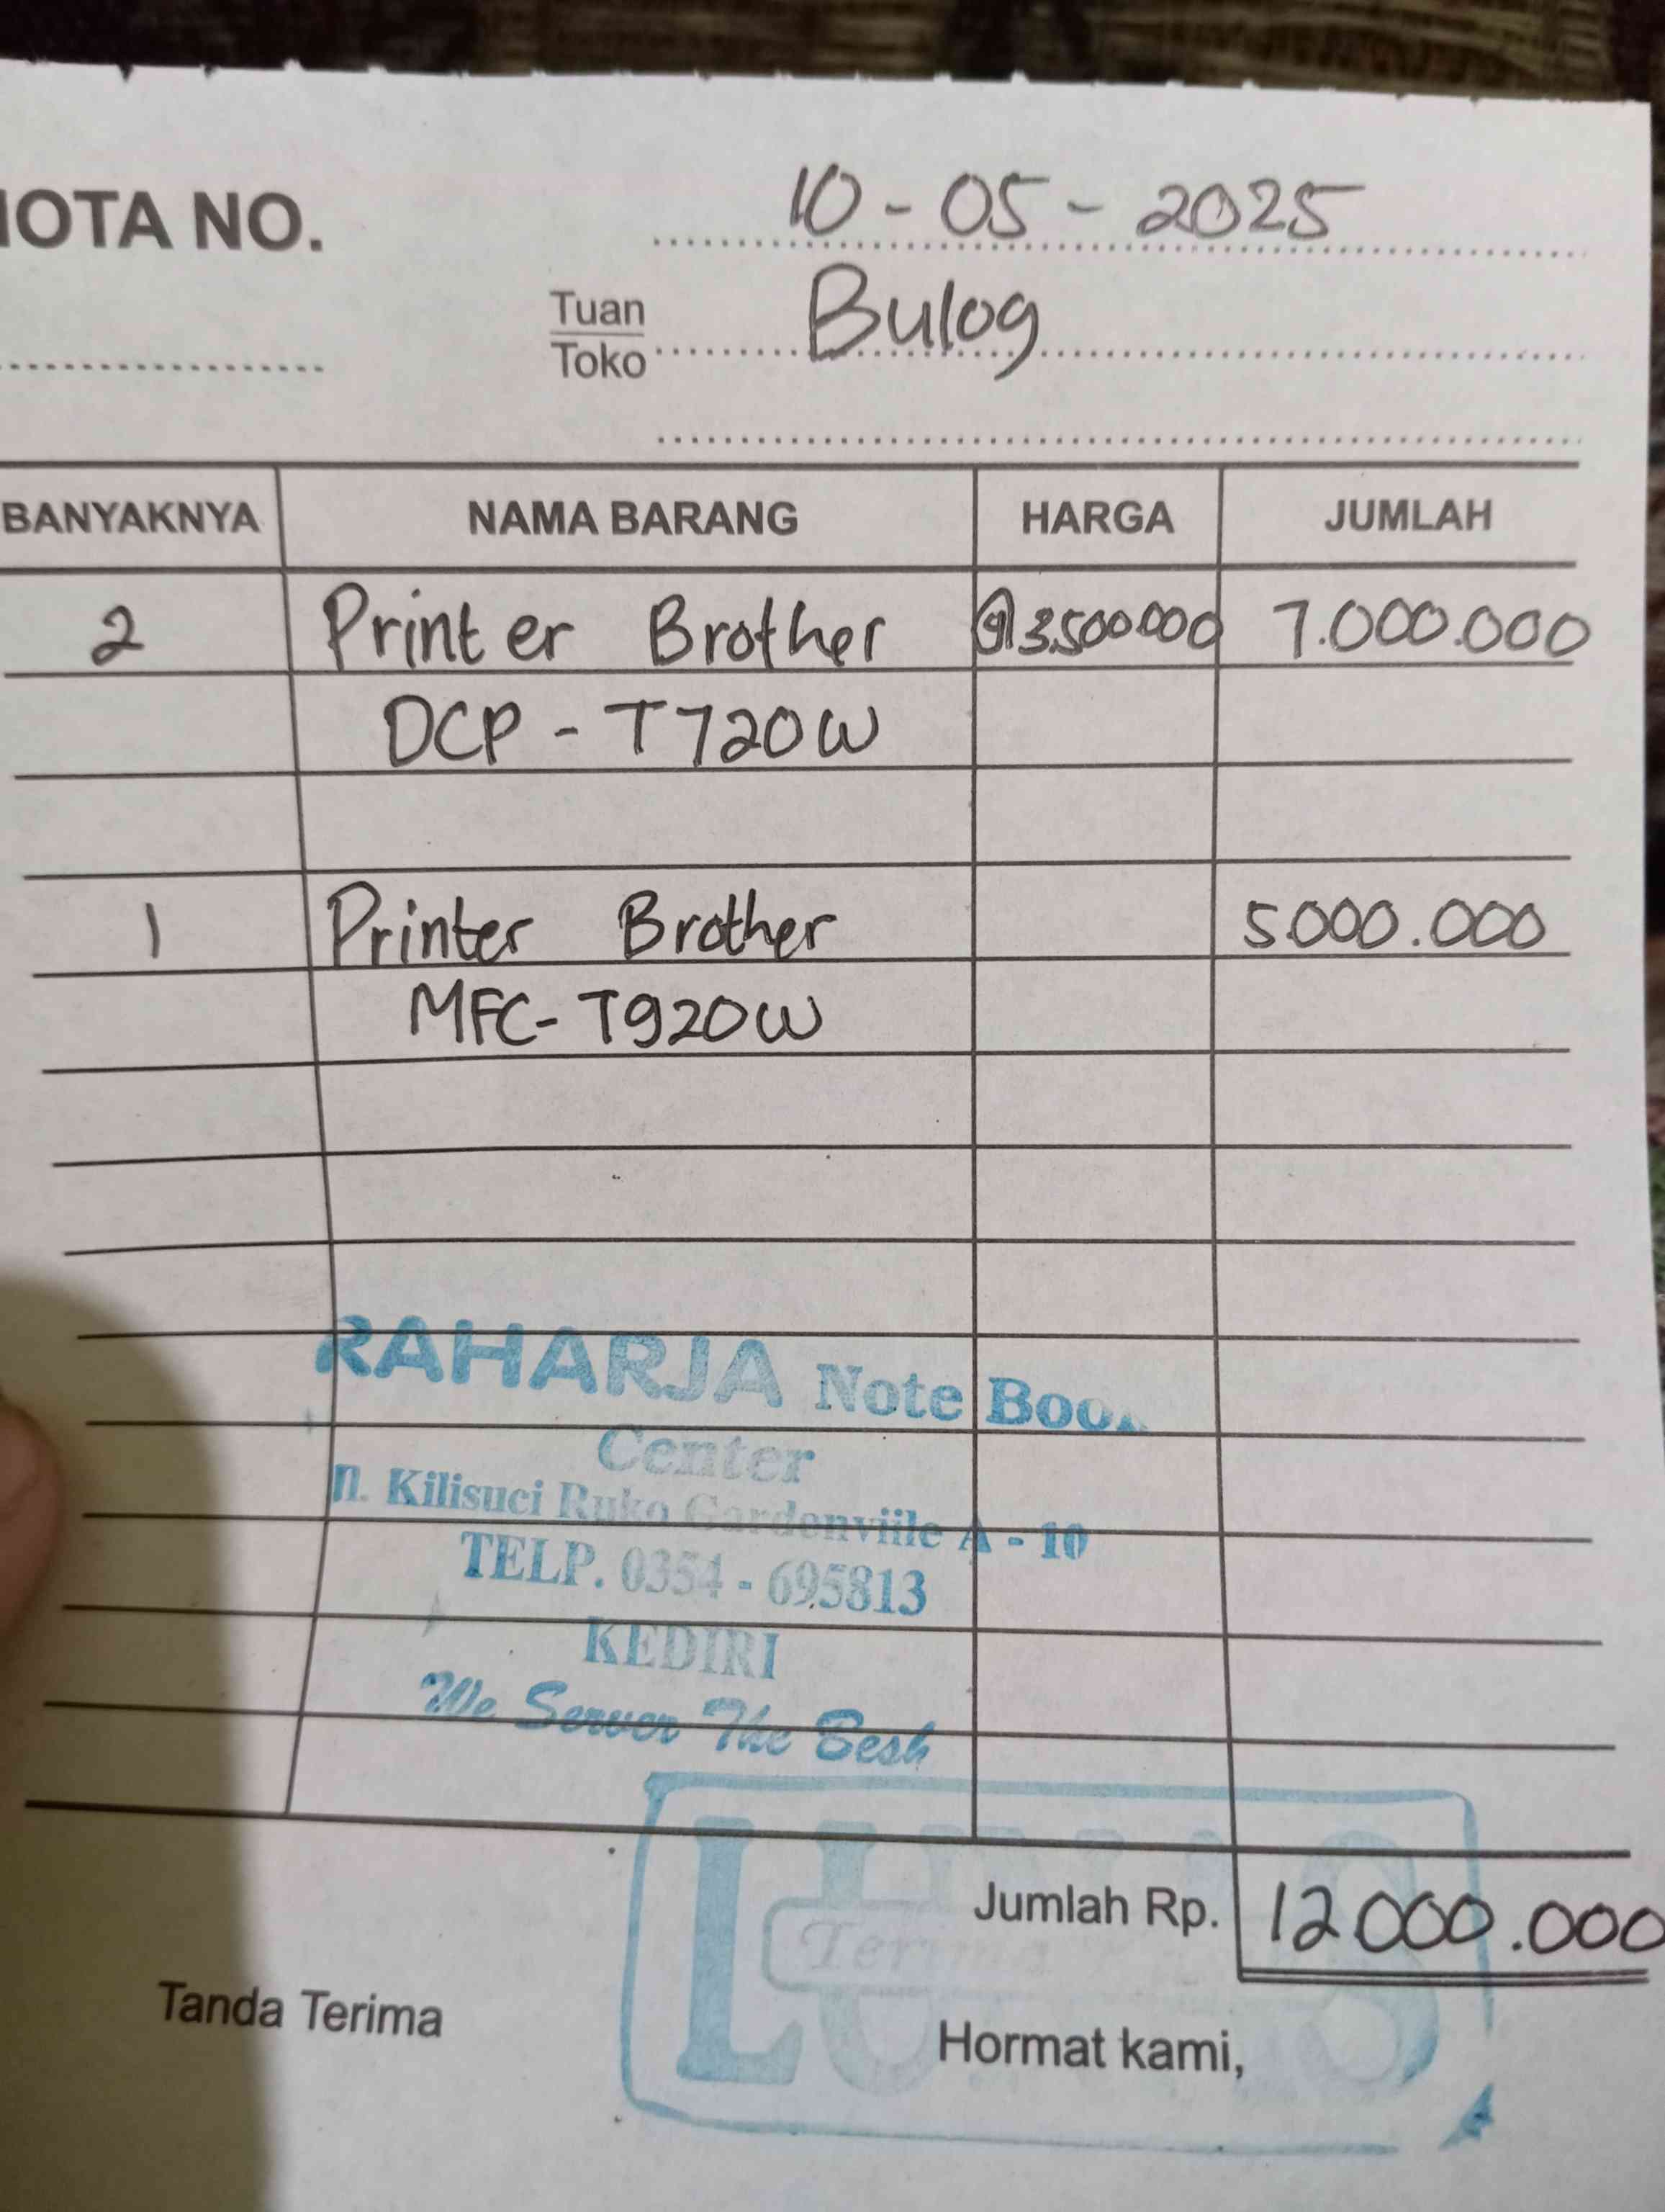 IOTA NO.
10 - 05 - 2025
Tuan
Toko
Bulog
BANYAKNYA NAMA BARANG HARGA JUMLAH
2 Printer Brother @ 3.500000 7.000.000
DCP - T720W
1 Printer Brother 5.000.000
MFC- T920W
RAHARJA Note Book
Center
Jl. Kilisuci Ruko Gardenviile A - 10
TELP. 0354 - 695813
KEDIRI
We Server The Besh
LUNAS
Terima
Jumlah Rp. 12000.000
Tanda Terima
Hormat kami,